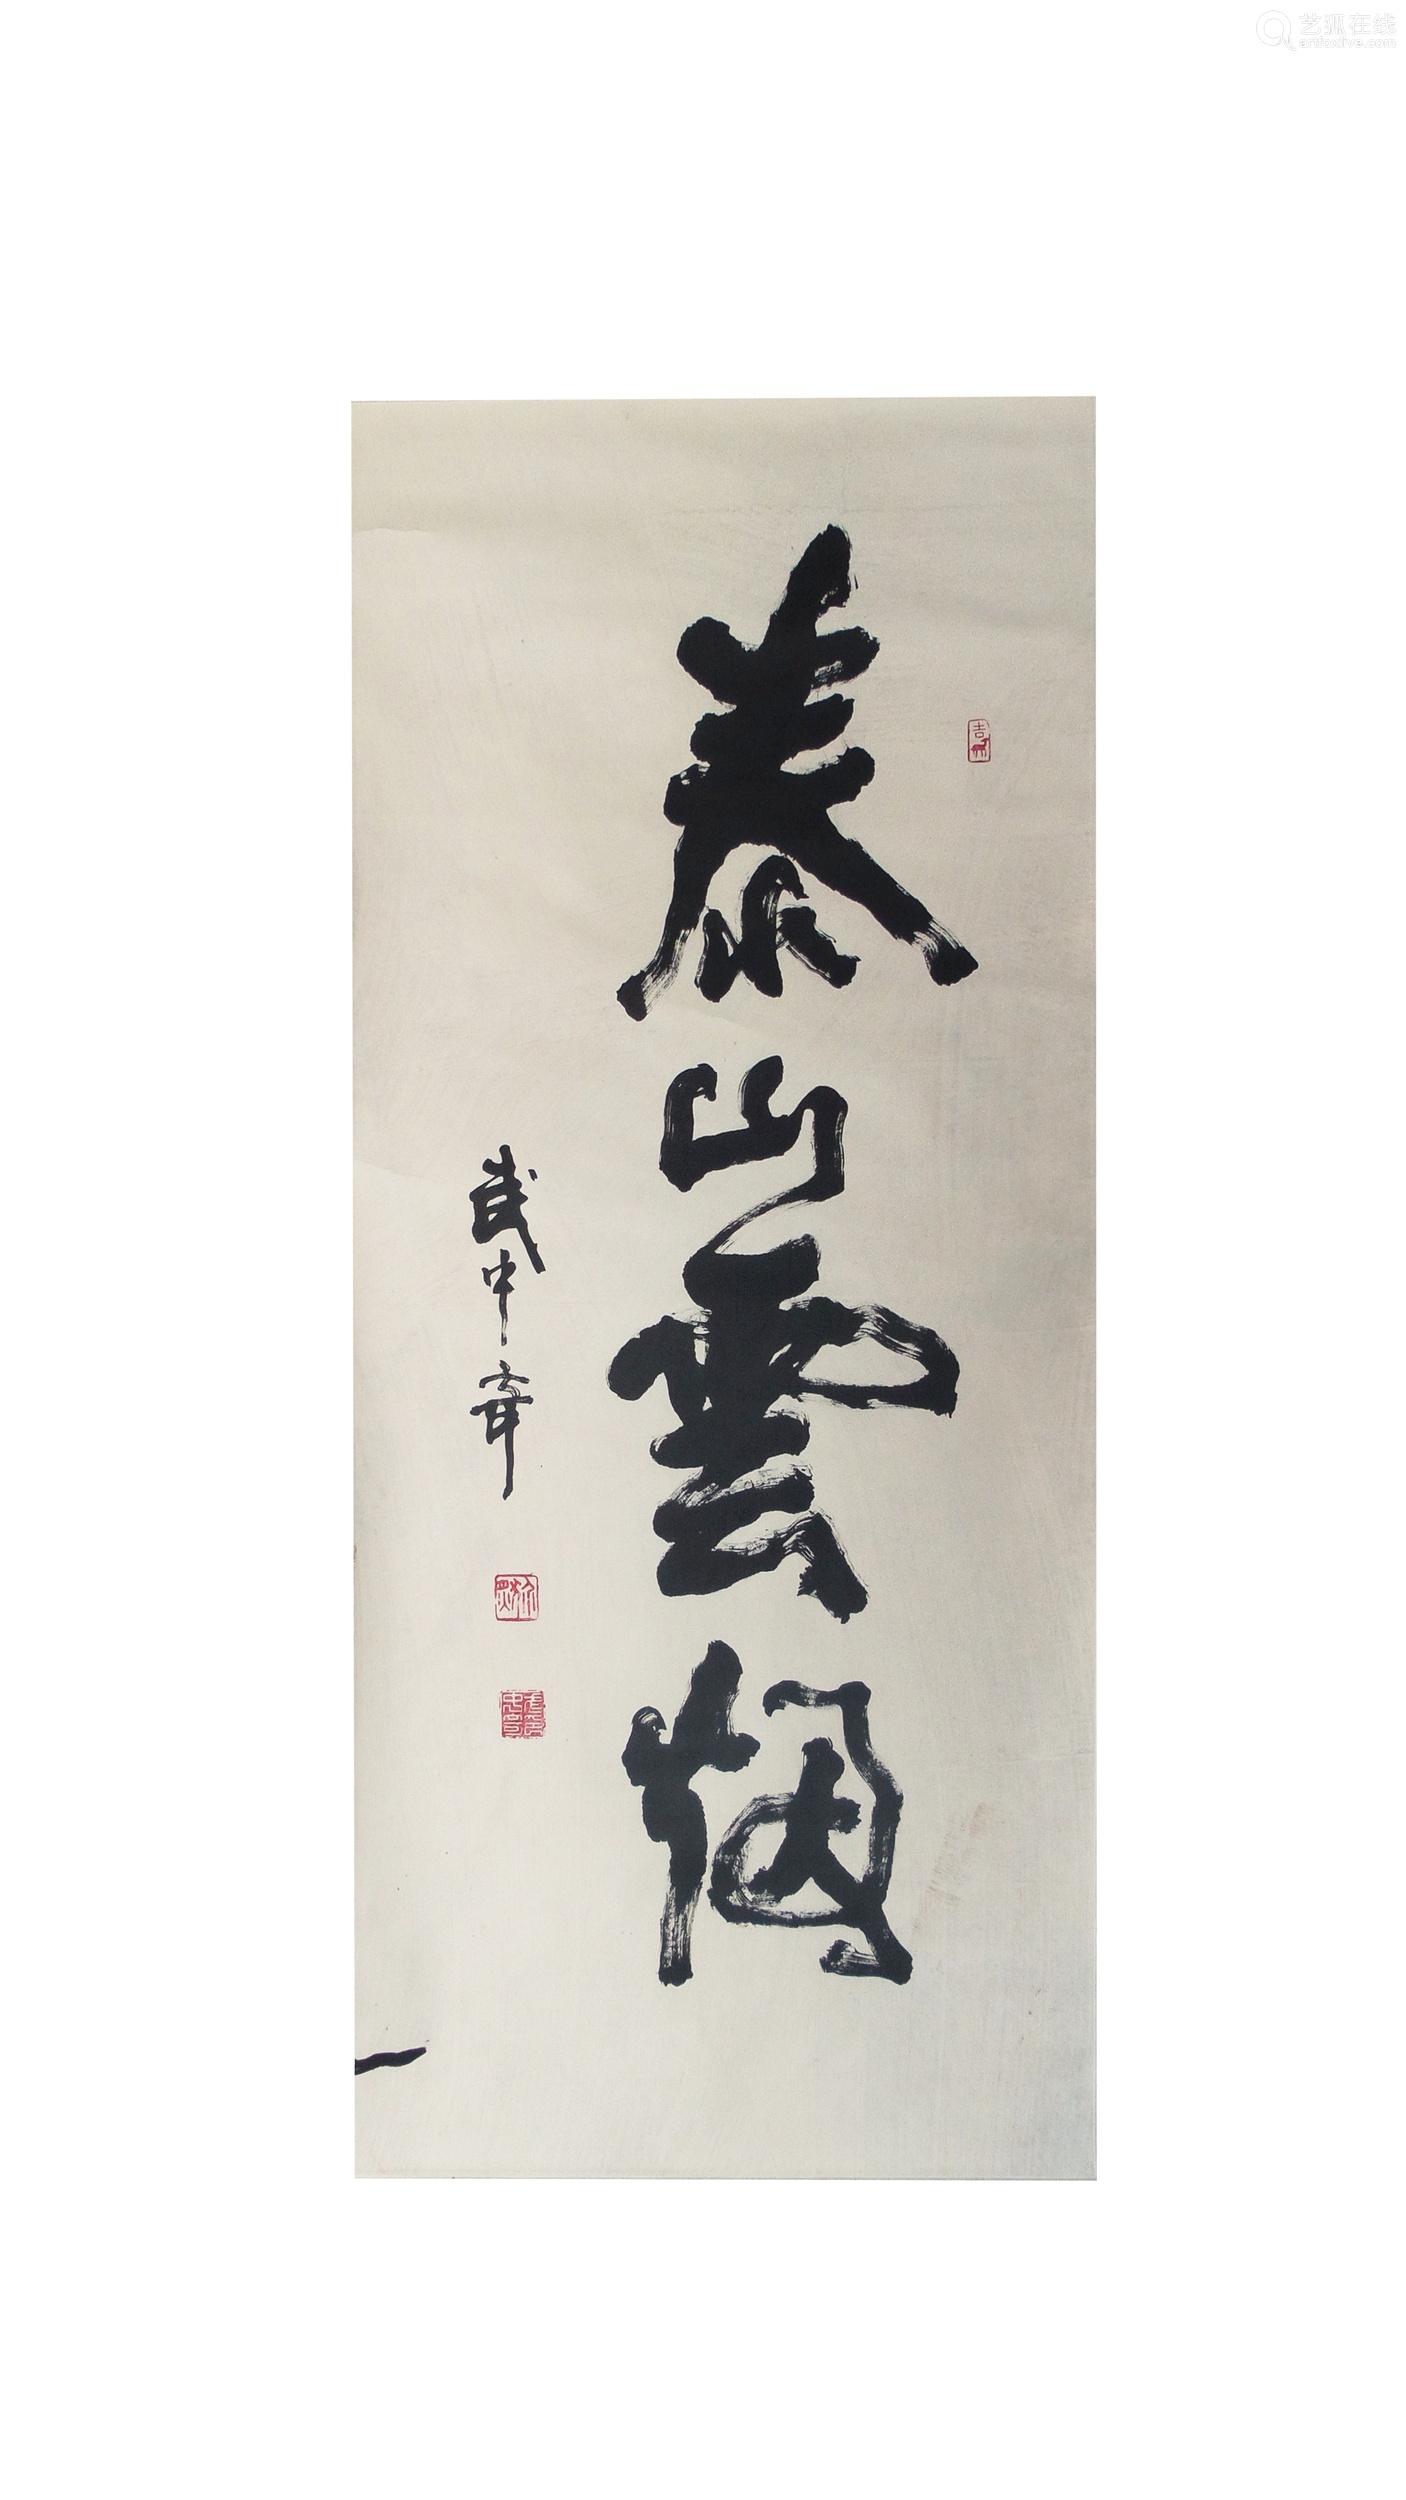 艺狐在线
artfoxlive.com
泰山雲烟
武中奇
吉